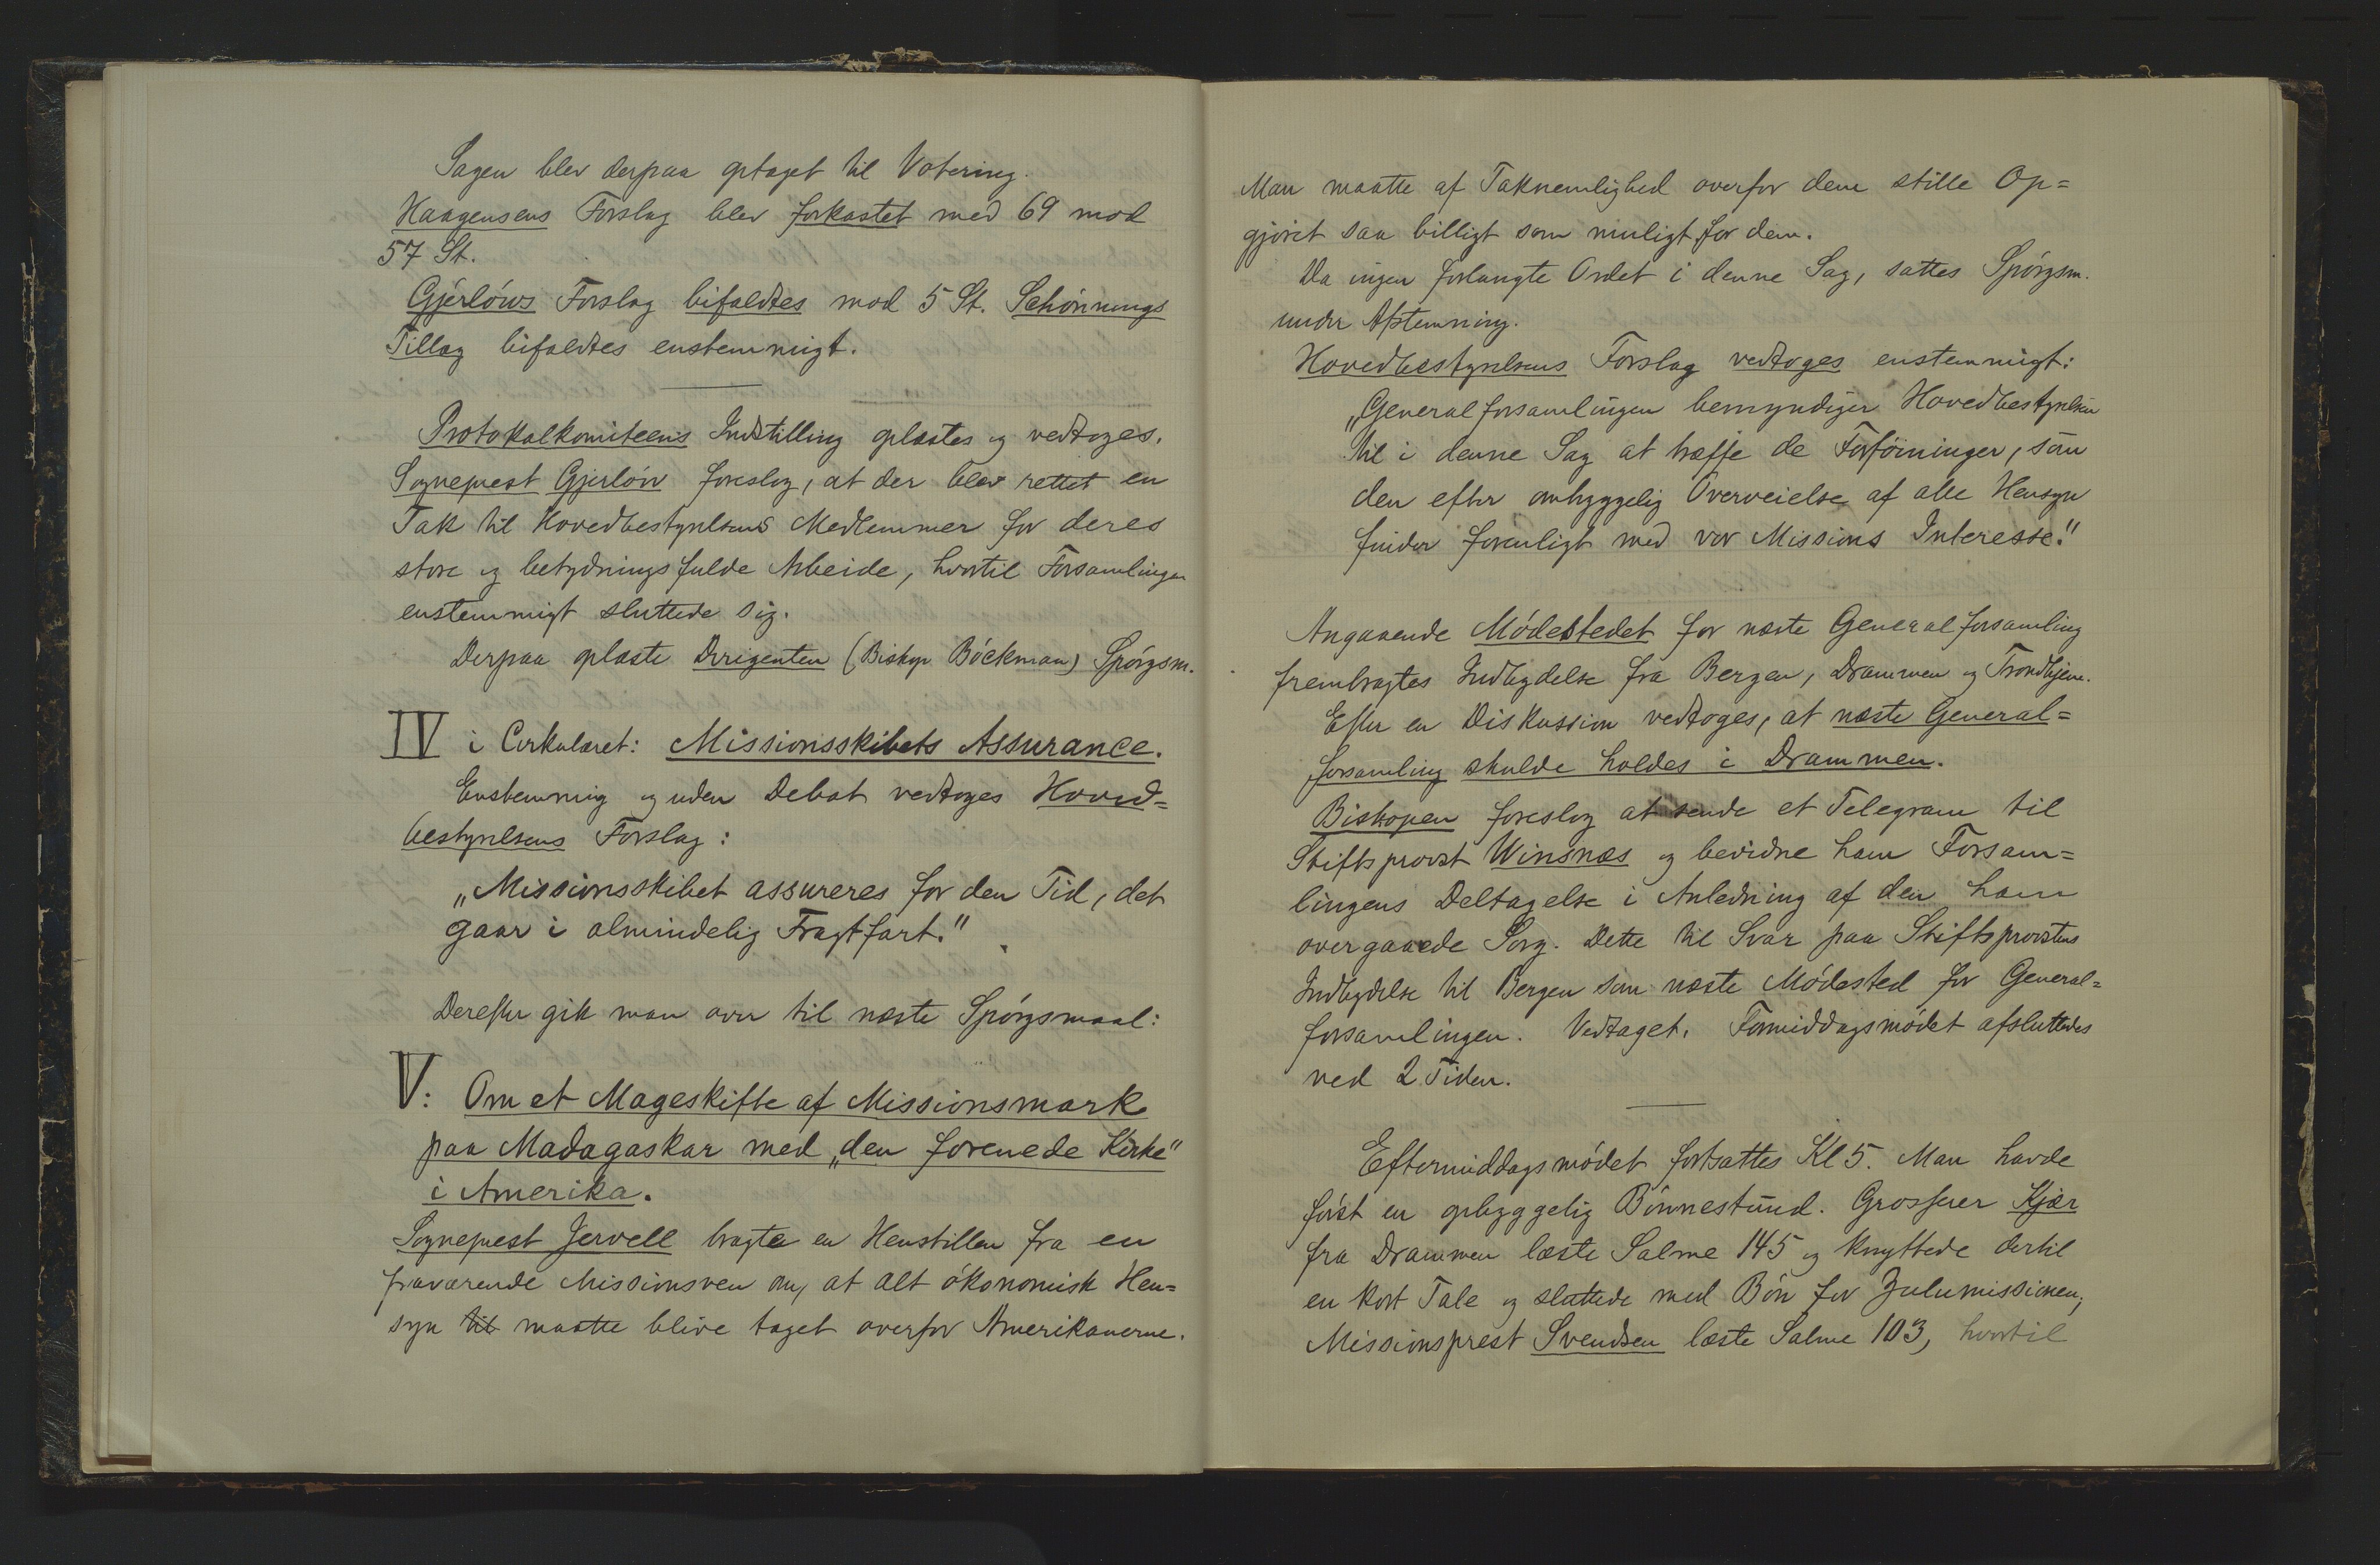 Sagen blev derpaa optaget til Votering.
Haagensens Forslag blev forkastet med 69 mod
57 St.
Gjerløws Forslag bifaldtes mod 5 St. Schønnings
Tillæg bifaldtes enstemmigt.
Protokolkomiteens Indstilling oplæstes og vedtoges.
Sogneprest Gjerløw foreslog, at der blev rettet en
Tak til Hovedbestyrelsens Medlemmer for deres
store og betydningsfulde Arbeide, hvortil Forsamlingen
enstemmigt sluttede sig.
Derpaa oplæste Dirigenten (Biskop Bøckman) Spørgsm.
IV i Cirkulæret: Missionsskibets Assurance.
Enstemmig og uden Debat vedtoges Hoved=
bestyrelsens Forslag:
„Missionsskibet assureres for den Tid, det
gaar i almindelig Fragtfart."
Derefter gik man over til næste Spørgsmaal:
V: Om et Mageskifte af Missionsmark
paa Madagaskar med „den forenede Kirke"
i Amerika.
Sogneprest Jervell bragte en Henstillen fra en
fraværende Missionsven om, at alt økonomisk Hen=
syn til maatte blive taget overfor Amerikanerne.
Man maatte af Taknemlighed overfor dem stille Op=
gjøret saa billigt som muligt for dem.
Da ingen forlangte Ordet i denne Sag, sattes Spørgsm.
under Afstemning.
Hovedbestyrelsens Forslag vedtoges enstemmigt:
„Generalforsamlingen bemyndiger Hovedbestyrelsen
til i denne Sag at træffe de Forføininger, som
den efter omhyggelig Overveielse af alle Hensyn
finder forenligt med vor Missions Interesse."
Angaaende Mødestedet for næste Generalforsamling
frembragtes Indbydelse fra Bergen, Drammen og Trondhjem.
Efter en Diskussion vedtoges, at næste General=
forsamling skulde holdes i Drammen.
Biskopen foreslog at sende et Telegram til
Stiftsprovst Winsnes og bevidne ham Forsam=
lingens Deltagelse i Anledning af den ham
overgaaede Sorg. Dette til Svar paa Stiftsprovstens
Indbydelse til Bergen som næste Mødested for General=
forsamlingen. Vedtaget. Formiddagsmødet afsluttedes
ved 2 Tiden.
Eftermiddagsmødet fortsattes Kl 5. Man havde
først en opbyggelig Bønnestund. Grosserer Kjær
fra Drammen læste Salme 145 og knyttede dertil
en kort Tale og sluttede med Bøn for Zulumissionen;
Missionsprest Svendsen læste Salme 103, hvortil